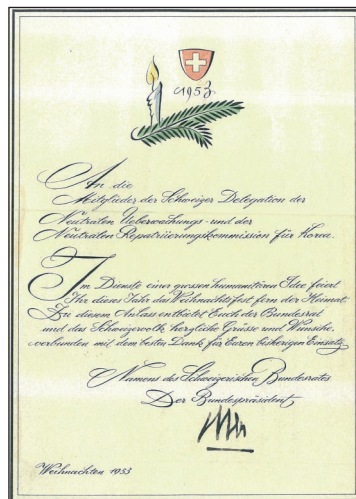 1953.
An die
Mitglieder der Schweizer Delegation der
Neutralen Ueberwachungs- und der
Neutralen Repatriierungskommission für Korea.
Im Dienste einer grossen humanitären Idee feiert
Ihr dieses Jahr das Weihnachtsfest fern der Heimat.
Zu diesem Anlass entbietet Euch der Bundesrat
und das Schweizervolk herzliche Grüsse und Wünsche,
verbunden mit dem besten Dank für Euren bisherigen Einsatz.
Namens des Schweizerischen Bundesrates
Der Bundespräsident
Weihnachten 1953